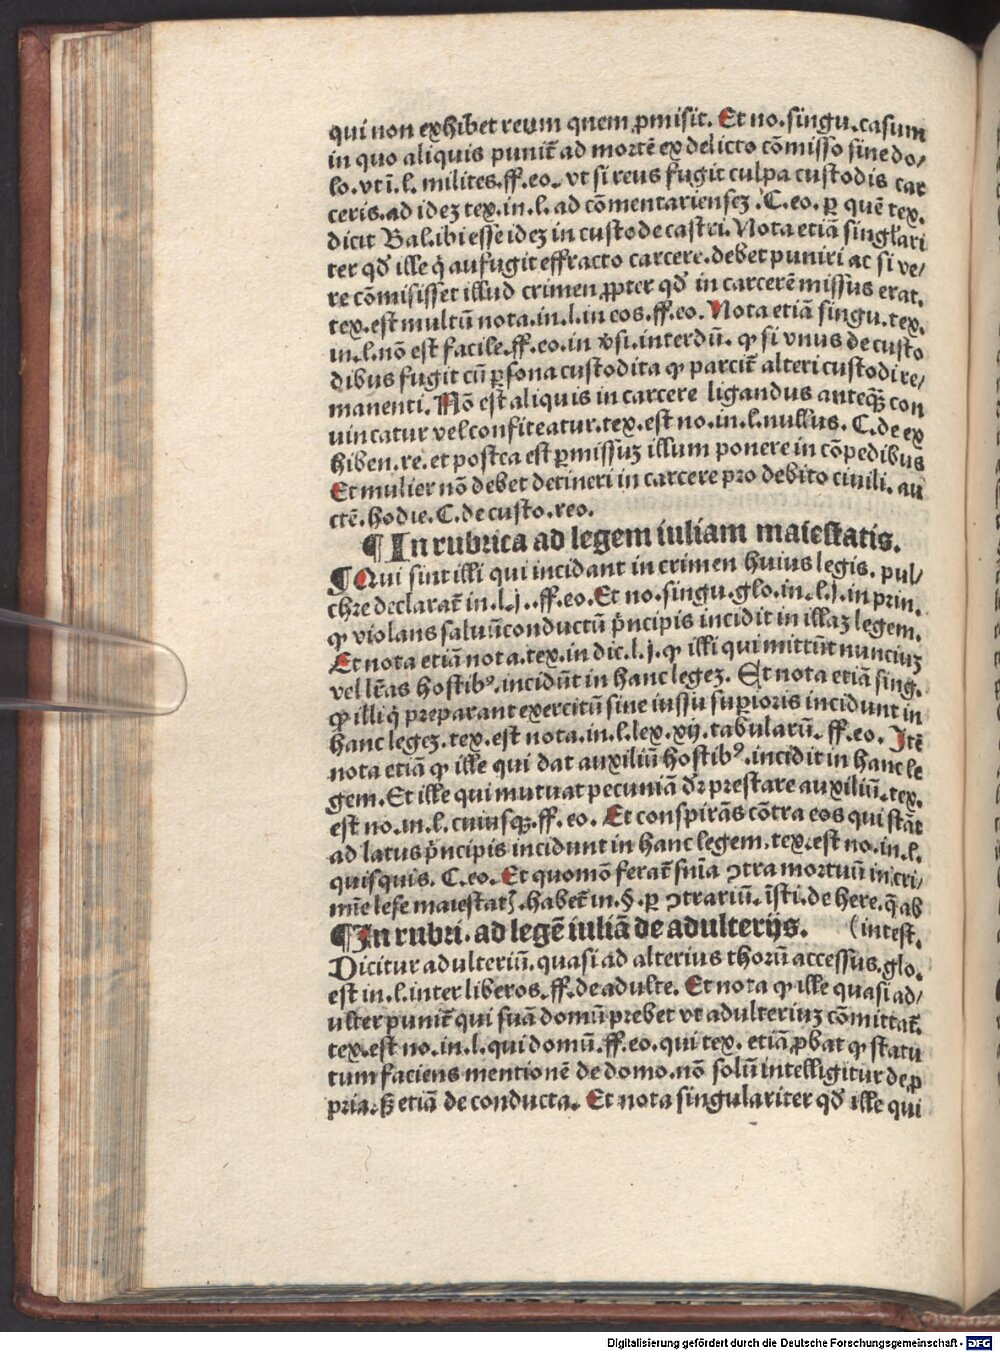 qui non exhibet reum quem ꝓmisit. Et no. singu. casum
in quo aliquis punit̄ ad mortē ex delicto cōmisso sine do⸗
lo. vt ī. l. milites. ff. eo. vt si reus fugit culpa custodis car
ceris. ad ideꝫ tex. in. l. ad cōmentarienseꝫ. C. eo. ꝑ quē tex.
dicit Bal. ibi esse ideꝫ in custode castri. Nota etiā singlari
ter qd̄ ille q̇ aufugit effracto carcere. debet puniri ac si ve⸗
re cōmisisset illud crimen ꝓpter qd̄ in carcerē missus erat.
tex. est multū nota. in. l. in eos. ff. eo. Nota etiā singu. tex.
in. l. nō est facile. ff. eo. in v̓si. interdū. ꝙ si vnus de custo
dibus fugit cū ꝑsona custodita ꝙ parcit̄ alteri custodi re⸗
manenti. Nō est aliquis in carcere ligandus anteq̄ꝫ con
uincatur vel confiteatur. tex. est no. in. l. nullus. C. de ex
hiben. re. et postea est ꝑmissuꝫ illum ponere in cōpedibus
Et mulier nō debet detineri in carcere pro debito ciuili. au
ctē. hodie. C. de custo. reo.
¶ In rubrica ad legem iuliam maiestatis.
¶ Qui sint illi qui incidant in crimen huius legis. pul⸗
chre declarat̄ in. l. j. . ff. eo. Et no. singu. glo. in. l. j. in prin.
ꝙ violans saluūconductū p̄ncipis incidit in illaꝫ legem.
Et nota etiā nota. tex. in dic. l. j. ꝙ illi qui mittūt nunciuꝫ
vel lr̄as hostibꝰ. incidūt in hanc legeꝫ. Et nota etiā sing.
ꝙ illi q̇ preparant exercitū sine iussu suꝑioris incidunt in
hanc legeꝫ. tex. est nota. in. l. lex. xij. tabularū. ff. eo. Itē
nota etiā ꝙ ille qui dat auxiliū hostibꝰ. incidit in hanc le
gem. Et ille qui mutuat pecuniā dr̄ prestare auxiliū. tex.
est no. in. l. cuiusqꝫ. ff. eo. Et conspirās cōtra eos qui stāt
ad latus p̄ncipis incidunt in hanc legem. tex. est no. in. l.
quisquis. C. eo. Et quomō ferat̄ snīa ↄtra mortuū in cri⸗
mīe lese maiestatꝭ. habet̄ in. §. ꝑ ↄtrariū. īsti. de here. q̄ ab
¶ In rubri. ad legē iuliā de adulterijs. (intest.
Dicitur adulteriū. quasi ad alterius thorū accessus. glo.
est in. l. inter liberos. ff. de adulte. Et nota ꝙ ille quasi ad⸗
ulter punit̄ qui suā domū prebet vt adulteriuꝫ cōmittat̄.
tex. est no. in. l. qui domū. ff. eo. qui tex. etiā ꝓbat ꝙ statu
tum faciens mentionē de domo. nō solū intelligitur de ꝓ
pria. sꝫ etiā de conducta. Et nota singulariter qd̄ ille qui
Digitalisierung gefördert durch die Deutsche Forschungsgemeinschaft - DFG